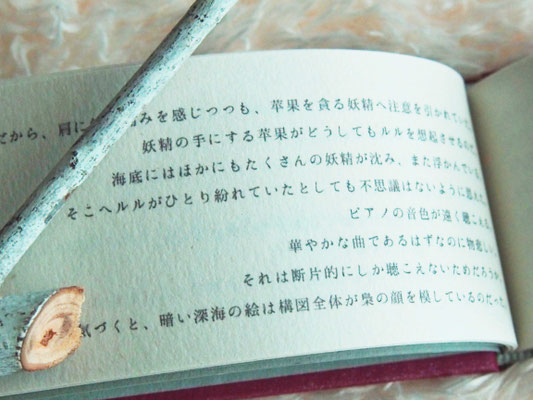 だから、肩に みを感じつつも、苹果を貪る妖精へ注意を引かれてい
妖精の手にする苹果がどうしてもルルを想起させるの
海底にはほかにもたくさんの妖精が沈み、また浮かんでいる
そこへルルがひとり紛れていたとしても不思議はないように思え
ピアノの音色が遠く聴こえる
華やかな曲であるはずなのに物悲し
それは断片的にしか聴こえないためだろうか
気づくと、暗い深海の絵は構図全体が梟の顔を模しているのだった